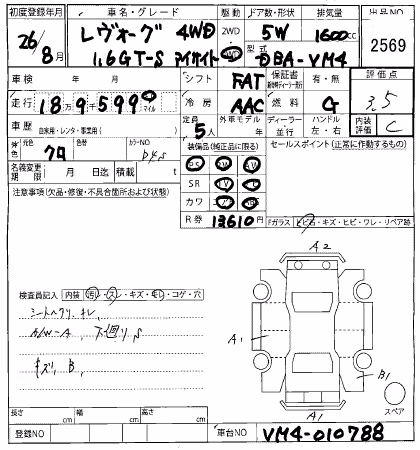 初度登録年月 車名・グレード 駆動 ドア数・形状 排気量 出品NO
26/8月 レヴォーグ 4WD 2WD 5W 1600cc 2569
1.6GT-S アイサイト 4WD 型式 DBA-VM4
車検 年 月 シフト FAT 保証書 有・無 評価点
走行 18万9599 km マイル 冷房 AAC 燃料 G 3.5
車歴 自家用・レンタ・事業用( ) 定員 5人 外車モデル 年 ディーラー 並行 ハンドル 左・右 内装評価 C
外装色 元色 クロ 色替 カラーNO D4S 装備品(純正品に限る) セールスポイント(正常に作動するもの)
名義変更期限 月 日迄 積載 t PS PW AV
注意事項(欠品・修復・不具合箇所および状態) SR
カワ エアB
R券 13610円 Fガラス トビ石・キズ・ヒビ・ワレ・リペア跡
A2
検査員記入 内装 汚れ・スレ・キズ・切レ・コゲ・穴
シートヘタリ、キレ、
A/W-A 下廻りS
A1
キズ、B、
B1
スペア
A1
長さ cm 幅 cm 高さ cm
登録NO 車台NO VM4-010788